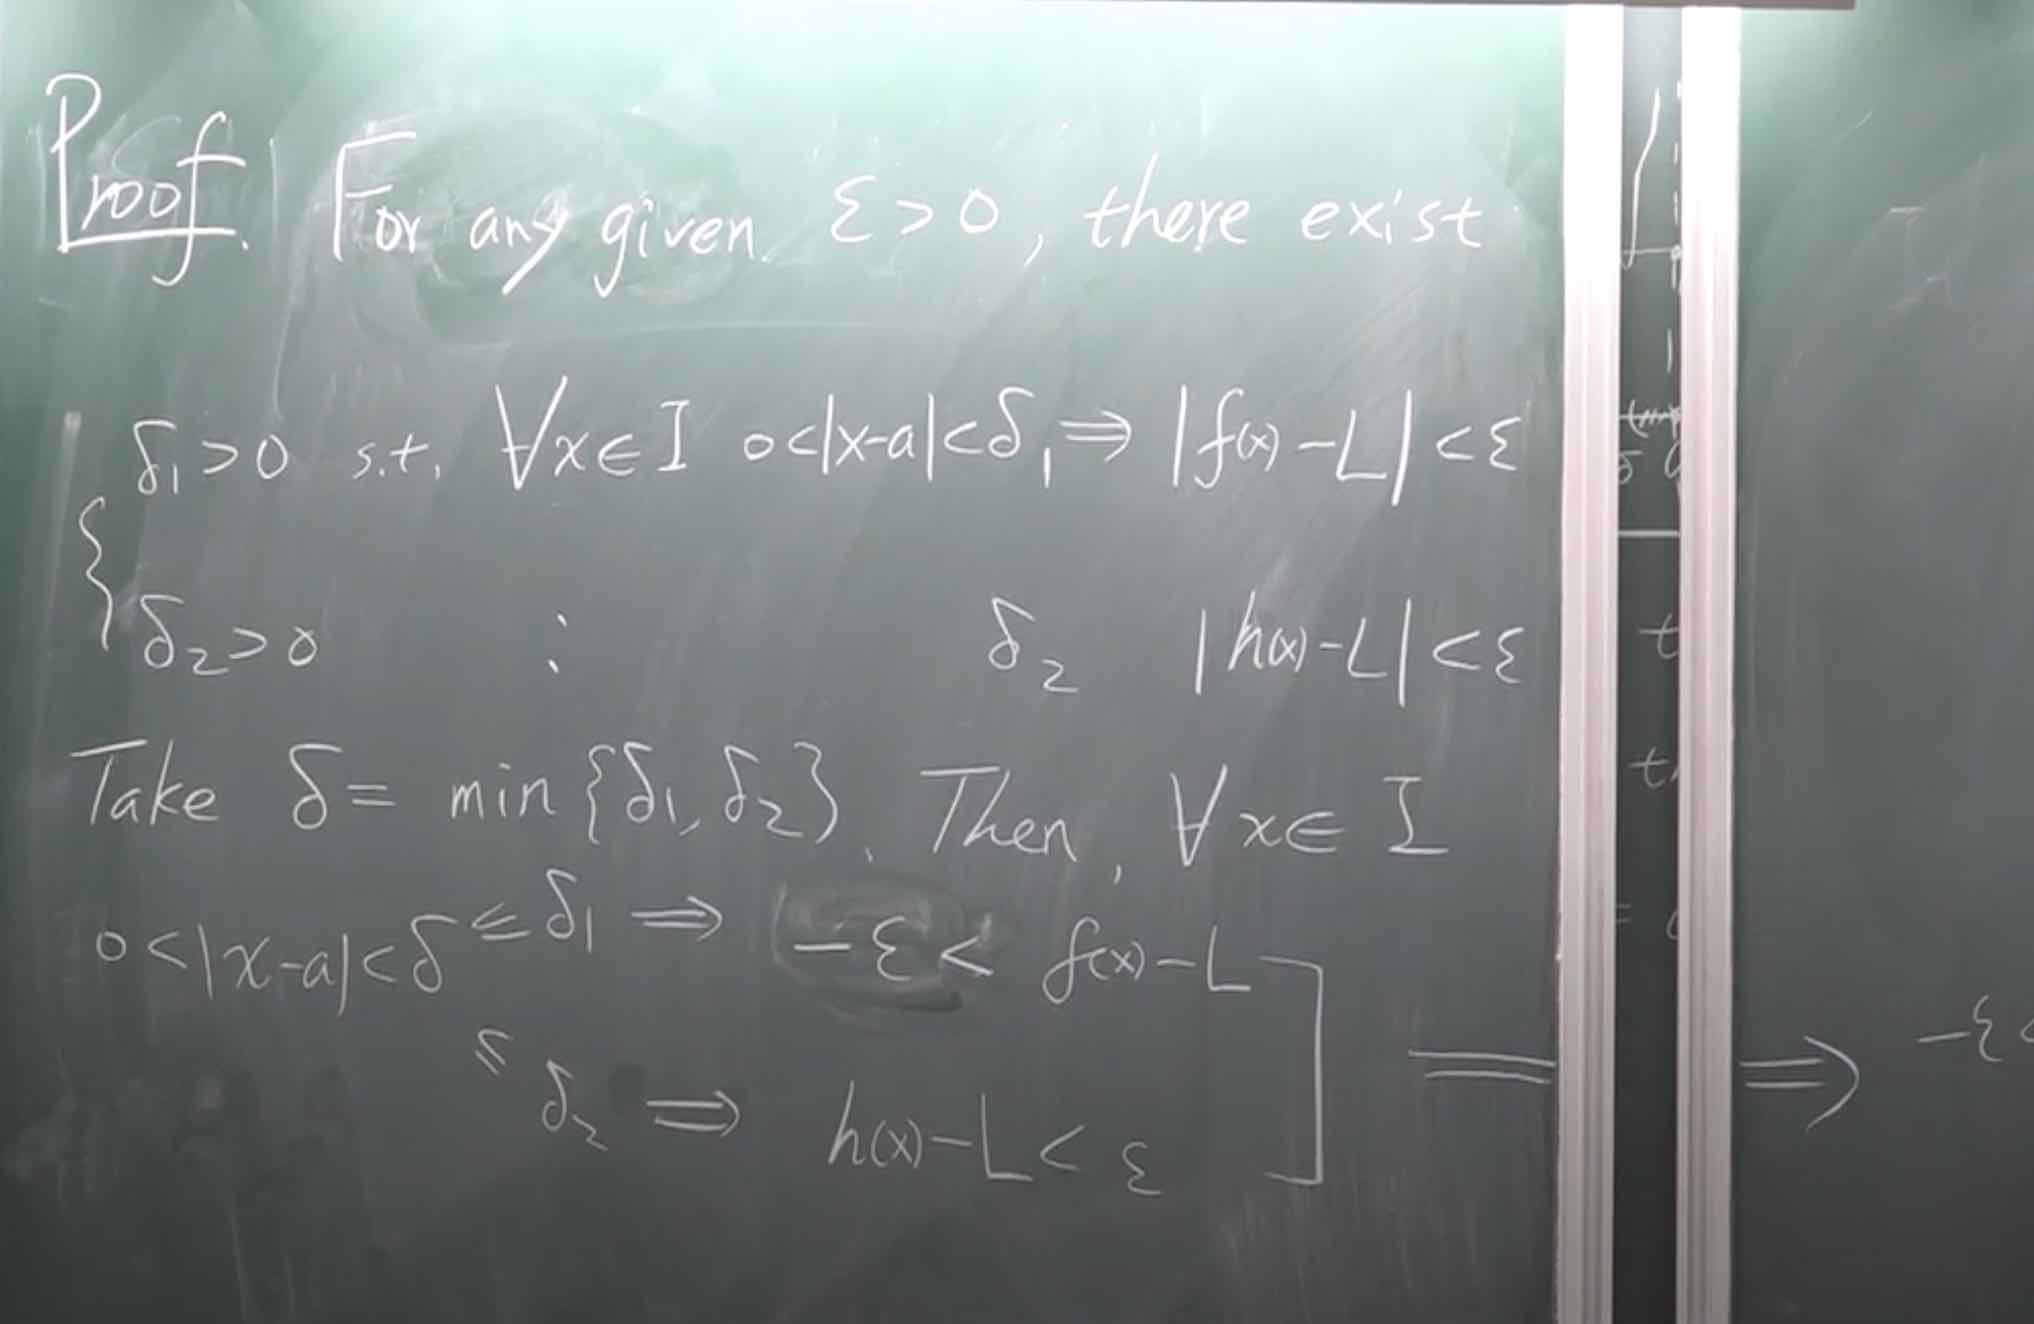 Proof. For any given ε>0, there exist
δ₁>0 s.t. ∀x∈I 0<|x-a|<δ₁⇒ |f(x)-L|<ε
{
δ₂>0 : δ₂ |h(x)-L|<ε
Take δ= min{δ₁,δ₂}. Then, ∀x∈I
0<|x-a|<δ ≤δ₁ ⇒ -ε< f(x)-L ]
≤ δ₂ ⇒ h(x)-L<ε
⇒ -ε<